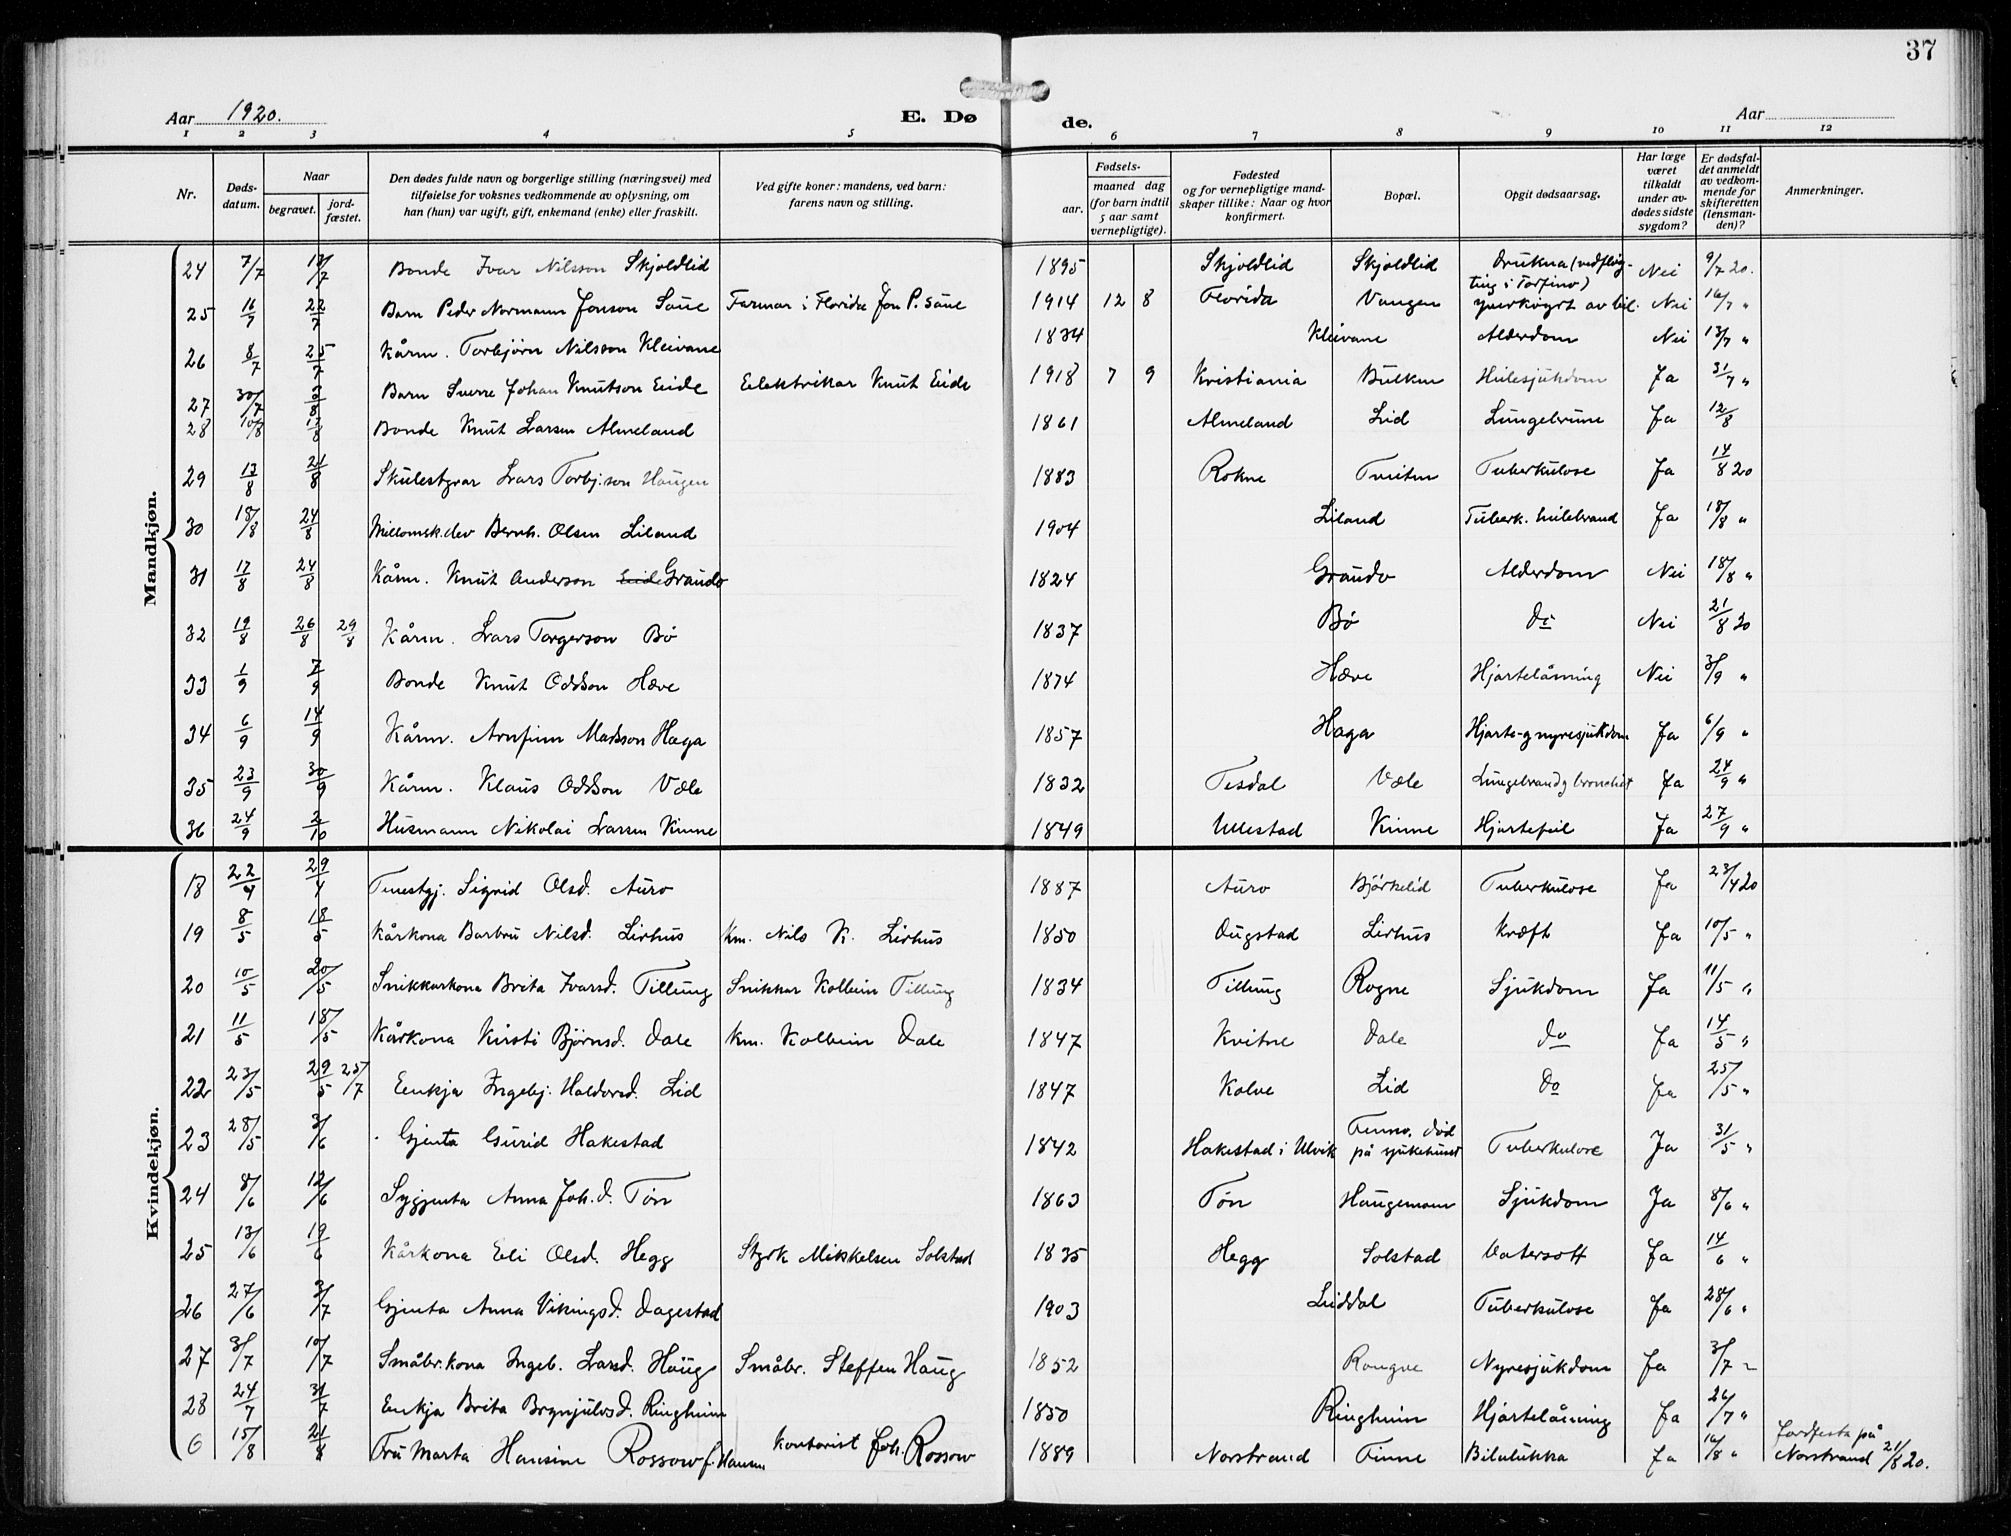 37
Aar 1920.
E. Dø
de.
Aar
1 2 3 4 5 6 7 8 9 10 11 12
Nr.
Døds-
datum.
Naar
begravet.
jord-
fæstet.
Den dødes fulde navn og borgerlige stilling (næringsvei) med
tilføielse for voksnes vedkommende av oplysning, om
han (hun) var ugift, gift, enkemand (enke) eller fraskilt.
Ved gifte koner: mandens, ved barn:
farens navn og stilling.
Fødsels-
aar.
maaned dag
(for barn indtil
5 aar samt
vernepligtige).
Fødested
og for vernepligtige mand-
skaper tillike: Naar og hvor
konfirmert.
Bopæl.
Opgit dødsaarsag.
Har læge
været
tilkaldt
under av-
dødes sidste
sygdom?
Er dødsfal-
det anmeldt
av vedkom-
mende for
skifteretten
(lensman-
den)?
Anmerkninger.
Mandkjøn.
24 7/7 13/7 Bonde Ivar Nilsson Skjoldlid 1895 Skjoldlid Skjoldlid Drukna (vedfløy- Nei 9/7 20.
ting i Torfino)
25 16/7 22/7 Barn Peder Normann Jonson Saue Farmar i Florida Jon P. Saue 1914 12 8 Florida Vangen yverkøyrt av bil. Nei 16/7 "
26 8/7 25/7 Kårm. Torbjörn Nilsson Kleivane 1834 Kleivane Alderdom Nei 13/7 "
27 30/7 3/8 Barn Sverre Johan Knutson Eide Eelektrikar Knut Eide 1918 7 9 Kristiania Bulken Hulesjukdom Ja 31/7 "
28 10/8 17/8 Bonde Knut Larsen Almeland 1861 Almeland Lid Lungebrune Ja 12/8
29 13/8 21/8 Skulestyrar Lars Torbj.son Haugen 1883 Rokne Tveiten Tuberkulose Ja 14/8 20
30 18/8 24/8 Millomsk.elev Bernh. Olsen Liland 1904 Liland Tuberk. hulebrand Ja 18/8 "
31 17/8 24/8 Kårm. Knut Anderson Eide Graudo 1824 Graudo Alderdom Nei 18/8 "
32 19/8 26/8 29/8 Kårm. Lars Torgerson Bö 1837 Bö Do Nei 21/8 20
33 1/9 7/9 Bonde Knut Oddson Hæve 1874 Hæve Hjartelåming Nei 3/9 "
34 6/9 14/9 Kårm. Arnfinn Madsson Haga 1857 Haga Hjarte-g nyresjukdom Ja 6/9 "
35 23/9 30/9 Kårm. Klaus Oddson Væle 1832 Tesdal Væle Lungebrand g bronchit Ja 24/9 "
36 24/9 2/10 Husmann Nikolai Larsen Kinne 1849 Ullestad Kinne Hjartefeil Ja 27/9 "
Kvindekjøn.
18 22/4 29/4 Tenestgj. Sigrid Olsd. Auro 1887 Auro Björkelid Tuberkulose Ja 23/4 20
19 8/5 18/5 Kårkona Barbru Nilsd. Lirhus Km. Nils K. Lirhus 1850 Dugstad Lirhus Kræft Ja 10/5 "
20 10/5 20/5 Snikkarkona Brita Ivarsd. Tillung Snikkar Kolbein Tillung 1834 Tillung Rogne Sjukdom Ja 11/5 "
21 11/5 18/5 Kårkona Kirsti Björnsd. Dale Km. Kolbein Dale 1847 Kvitne Dale Do Ja 14/5 "
22 23/5 29/5 25/7 Eenkja Ingebj. Haldorsd. Lid 1847 Kolve Lid Do Ja 25/5 "
23 28/5 3/6 Gjenta Gurid Hakestad 1842 Hakestad i Ulvik Finno, död Tuberkulose Ja 31/5 "
på sjukehuset
24 8/6 12/6 Sygjenta Anna Joh.d. Tön 1863 Tön Haugemoen Sjukdom Ja 8/6 "
25 13/6 19/6 Kårkona Eeli Olsd. Hegg Styrk Mikkelsen Solstad 1835 Hegg Solstad Vatersott Ja 14/6 "
26 27/6 3/7 Gjenta Anna Vikingsd. Dagestad 1903 Liddal Tuberkulose Ja 28/6 "
27 3/7 10/7 Småbr.kona Ingeb. Larsd. Haug Småbr. Steffen Haug 1852 Rongve Nyresjukdom Ja 3/7 "
28 24/7 31/7 Eenkja Brita Brynjulvsd. Ringheim 1850 Ringheim Hjartelåming Ja 26/7 "
6 15/8 21/8 Fru Marta Hansine Rossow f. Hansen Kontorist Joh. Rossow 1889 Norstrand Finne Bilulukka Ja 16/8 " Jordfesta på
Norstrand 21/8 20.